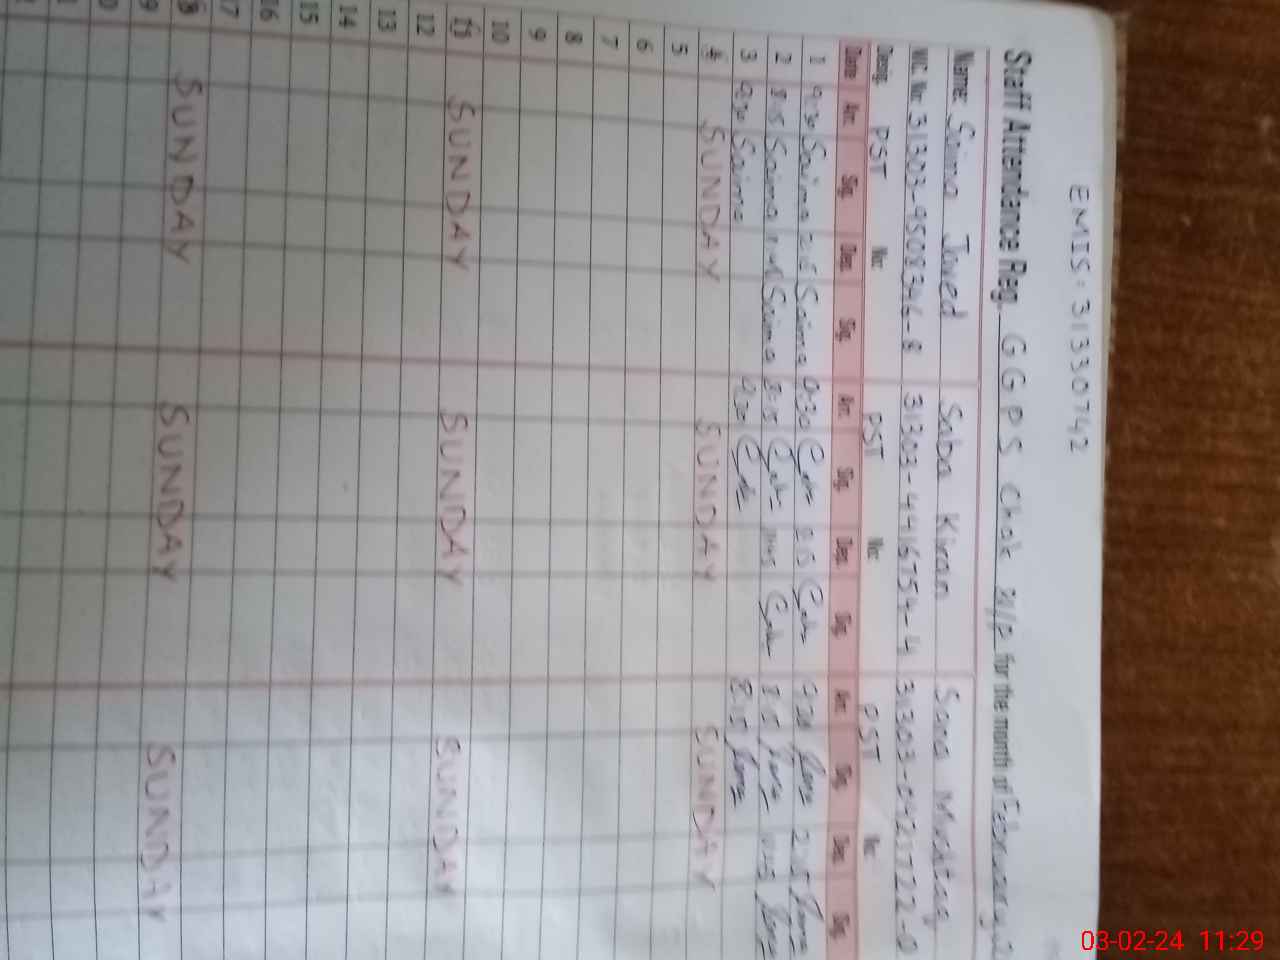 EMIS: 31330742
Staff Attendance Reg. GGPS Chak 21/P for the month of February
Name: Saima Javed Saba Kiran Sana Mushtaq
NIC No: 31303-9508346-8 31303-4416754-4 31303-0421722-0
Desig: PST No: PST No: PST No:
Date Arr. Sig. Dep. Sig. Arr. Sig. Dep. Sig. Arr. Sig. Dep. Sig.
1 9:30 Saima 2:15 Saima 9:30 2:15 9:30 2:15
2 8:15 Saima Saima 8:15 11:45 8:15
3 9:30 Saima 9:30 8:15
4 SUNDAY SUNDAY SUNDAY
5
6
7
8
9
10
11 SUNDAY SUNDAY SUNDAY
12
13
14
15
16
17
18 SUNDAY SUNDAY SUNDAY
03-02-24 11:29